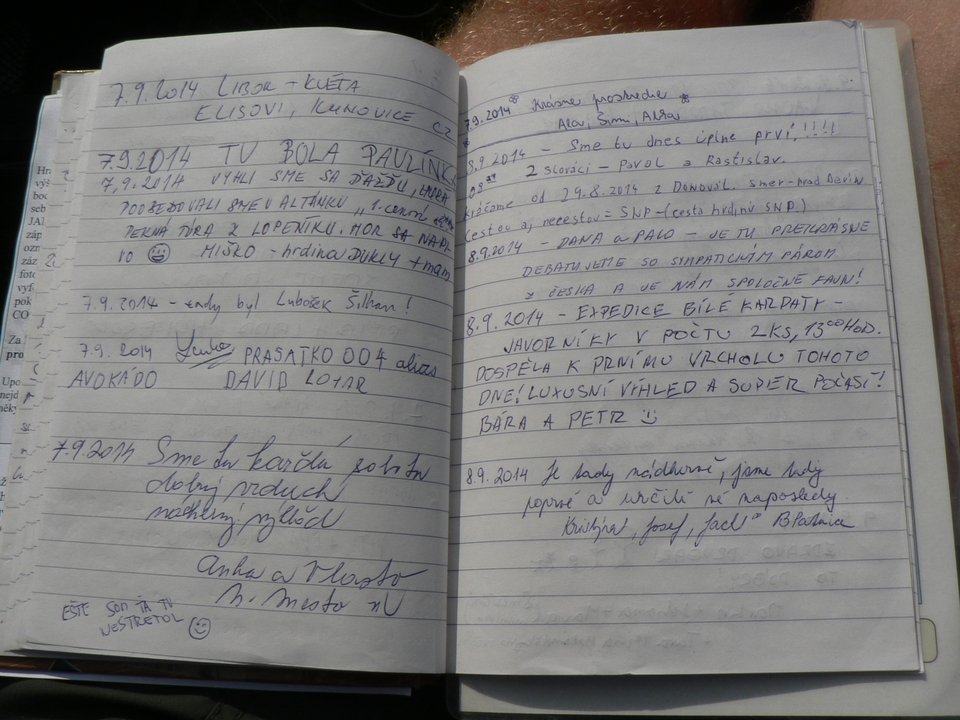 7.9.2014 LIBOR - KVĚTA
ELISOVI, KUNOVICE CZ
7.9.2014 TU BOLA PAVLÍNKA
7.9.2014 VYHLI SME SA DÁŽĎU, HURÁ
SME V ALTÁNKU „1.cenová
PEKNÁ TÚRA Z LOPENÍKU. MOR SA
VO MIŠKO - hrdina DUKLY + mam
7.9.2014 - tady byl Lubošek Šilhan!
7.9.2014 Lenka PRASATKO 004 alias
AVOKÁDO DAVID LOTAR
7.9.2014 Sme tu každú sobotu
dobrý vzduch
nádherný výhľad
Anka a Vlasto
N. Mesto n V
EŠTE SOM ŤA TU
NESTRETOL
7.9.2014 Krásne prostredie
8.9.2014 - Sme tu dnes úplne prví!!!!!
2 Slováci - Pavol a Rastislav.
Kráčame od 29.8.2014 z Donovál. smer - hrad Devín
Cestou aj necestou = SNP - (cesta hrdinů SNP.)
8.9.2014 - DANA a PALO - JE TU PREKRÁSNE
DEBATUJEME SO SYMPATICKÝM PÁROM
z ČESKA A JE NÁM SPOLOČNE FAJN!
8.9.2014 - EXPEDICE BÍLÉ KARPATY -
JAVORNÍKY V POČTU 2KS, 13⁰⁰HOD.
DOSPĚLA K PRVNÍMU VRCHOLU TOHOTO
DNE! LUXUSNÍ VÝHLED A SUPER POČASÍ!
BÁRA A PETR
8.9.2014 Je tady nádherně, jsme tady
poprvé a určitě ne naposledy
Kristýna, Josef, Jack